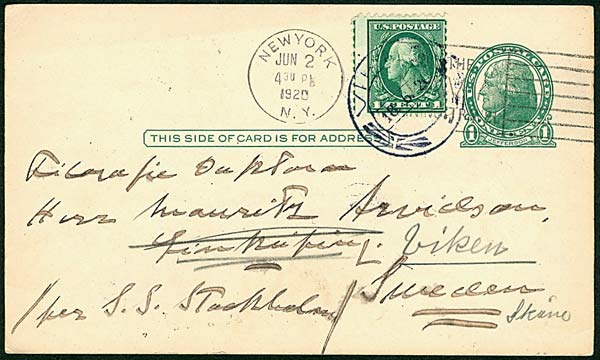 NEW YORK
JUN 2
4 30 PM
1920
N.Y.
U.S. POSTAGE
1 CENT 1
U.S. POSTAL CARD
JEFFERSON
1 1
THIS SIDE OF CARD IS FOR ADDRESS
Filosofie Doktorn
Herr Mauritz Arvidson,
Linköping. Viken
/per S.S. Stockholm/ Sweden
Skåne